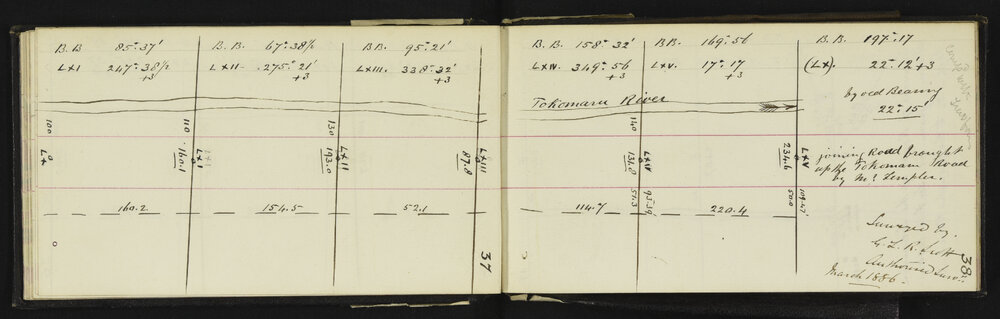 B.B 85°.37'
LXI 247°.38½ +3
B.B. 67°.38½
LXII 275°.21' +3
BB. 95°.21'
LXIII. 338°.32' +3
100
LX
110
160.1
130
LXII
193.0
LXIII
87.8
160.2
154.5
52.1
37
B.B. 158°.32'
LXIV. 349°.56 +3
BB. 169°.56
LXV. 17°.17 +3
B.B. 197°.17
(LX). 22°.12'+3
by oed Bearing
22°.15'
Tokomaru River
140
LXIV
131.0
LXV
234.6
joining Road brought
up the Tokomaru Road
by Mr. Templer.
51.5
95.59
50.0
109.47'
114.7
220.4
Surveyed by,
G. L. R. Scott
Authorised Surv.
March 1886.
38